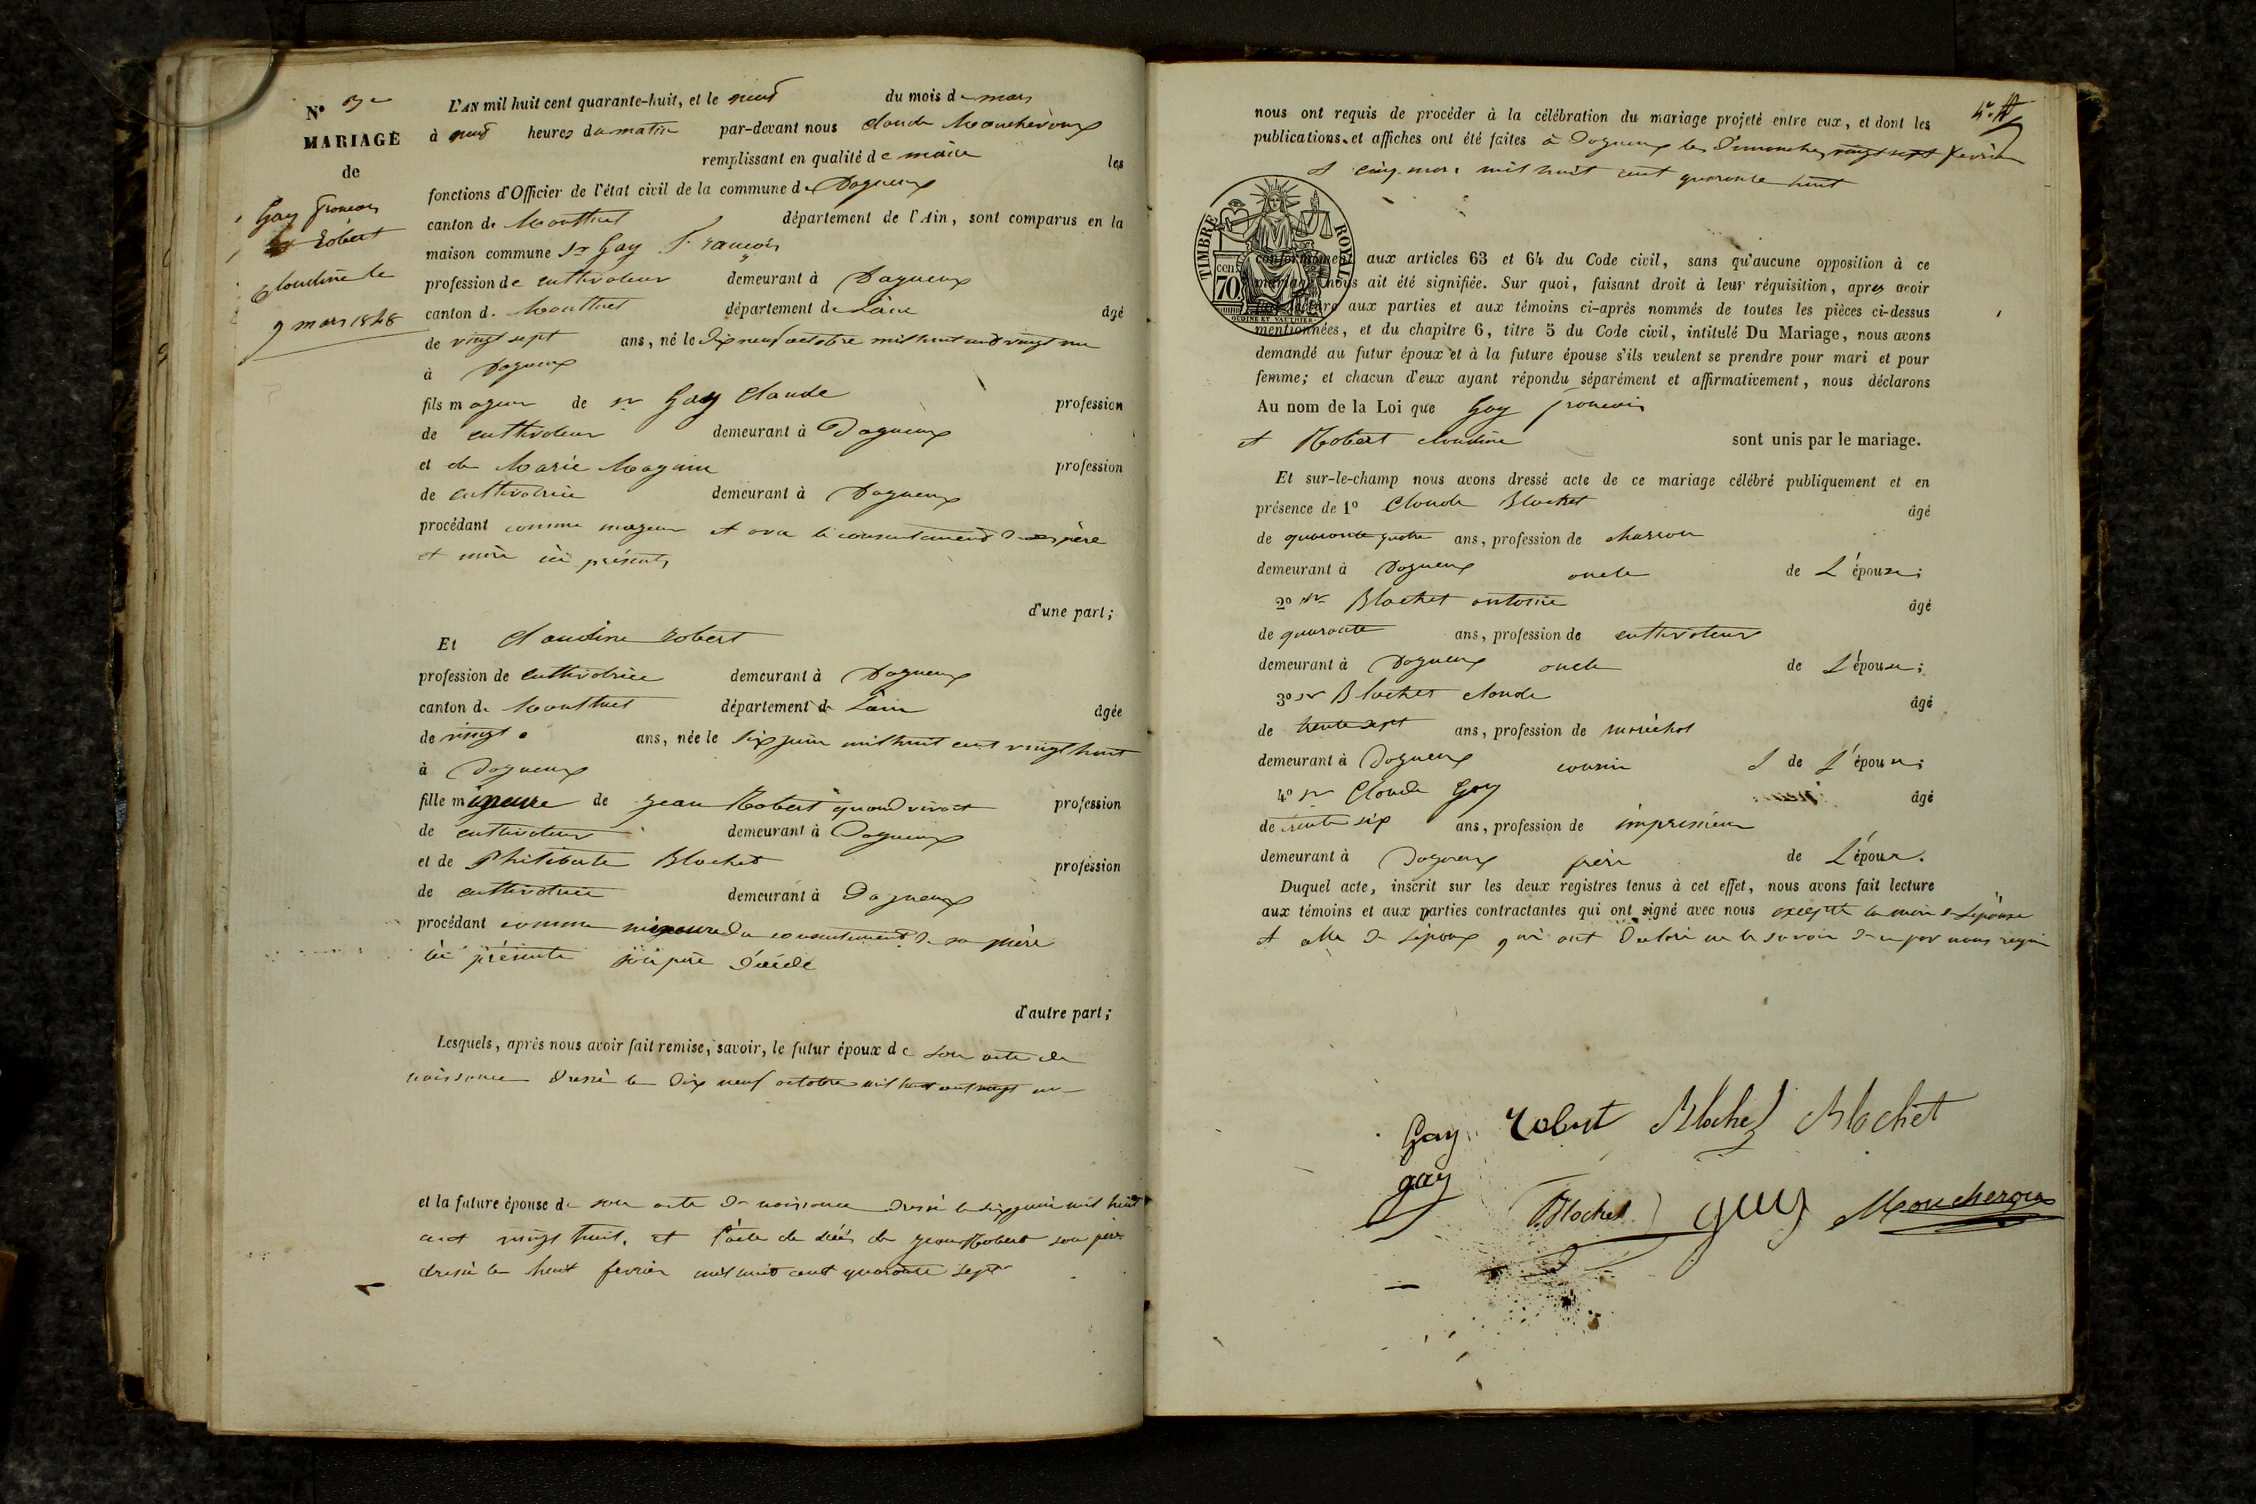 N° 
MARIAGE
de
Gay françois
et Robert
Claudine le
9 mars 1848
L'AN mil huit cent quarante-huit, et le neuf du mois de mars
à neuf heures du matin par-devant nous Claude Moucheroux
remplissant en qualité de maire les
fonctions d'Officier de l'état civil de la commune de Dagneux
canton de Montluel département de l'Ain, sont comparus en la
maison commune Sr Gay François
profession de cultivateur demeurant à Dagneux
canton de Montluel département de L'ain âgé
de vingt sept ans, né le dix neuf octobre mil huit cent vingt un
à Dagneux
fils majeur de Sr Gay Claude profession
de cultivateur demeurant à Dagneux
et de Marie profession
de cultivatrice demeurant à Dagneux
procédant comme majeur et avec le consentement de ses père
et mère ici présents
d'une part;
Et Claudine Robert
profession de cultivatrice demeurant à Dagneux
canton de Montluel département de L'ain âgée
de vingt ans, née le six juin mil huit cent vingt huit
à Dagneux
fille mineure de Jean Robert quand vivait profession
de cultivateur demeurant à Dagneux
et de Philiberte Blochet profession
de cultivatrice demeurant à Dagneux
procédant comme mineure du consentement de sa mère
ici présente son père décédé
d'autre part;
Lesquels, après nous avoir fait remise, savoir, le futur époux de son acte de
naissance dressé le dix neuf octobre mil huit cent vingt un
et la future épouse de son acte de naissance dressé le six juin mil huit
cent vingt huit, et l'acte de décès de Jean Robert son père
dressé le huit fevrier mil huit cent quarante sept
nous ont requis de procéder à la célébration du mariage projeté entre eux, et dont les
publications et affiches ont été faites à Dagneux les Dimanches vingt sept fevrier
et cinq mars mil huit cent quarante huit
TIMBRE ROYAL
70 cen
OUDINE ET VAUTHIER
conformément aux articles 63 et 64 du Code civil, sans qu'aucune opposition à ce
mariage nous ait été signifiée. Sur quoi, faisant droit à leur réquisition, apres avoir
fait lecture aux parties et aux témoins ci-après nommés de toutes les pièces ci-dessus
mentionnées, et du chapitre 6, titre 5 du Code civil, intitulé Du Mariage, nous avons
demandé au futur époux et à la future épouse s'ils veulent se prendre pour mari et pour
femme; et chacun d'eux ayant répondu séparément et affirmativement, nous déclarons
Au nom de la Loi que Gay françois
et Robert claudine sont unis par le mariage.
Et sur-le-champ nous avons dressé acte de ce mariage célébré publiquement et en
présence de 1° Claude Blochet âgé
de quarante quatre ans, profession de charron
demeurant à Dagneux oncle de L'épouse;
2° Sr Blochet antoine âgé
de quarante ans, profession de cultivateur
demeurant à Dagneux oncle de L'épouse;
3° Sr Blochet claude âgé
de trente sept ans, profession de maréchal
demeurant à Dagneux cousin de L'épouse;
4° Sr Claude Gay âgé
de trente six ans, profession de imprimeur
demeurant à Dagneux frère de L'époux.
Duquel acte, inscrit sur les deux registres tenus à cet effet, nous avons fait lecture
aux témoins et aux parties contractantes qui ont signé avec nous excepté la mère de L'épouse
et celle de L'époux qui ont déclaré ne le savoir de ce par nous requis
Gay Robert Blochet Blochet
gay
Blochet gay Moucheroux